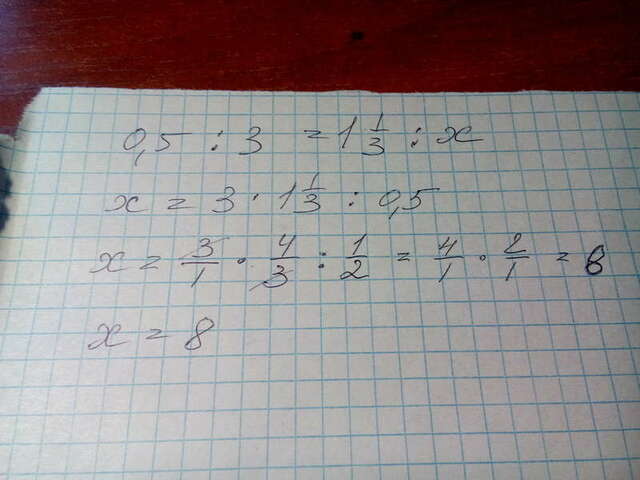 0,5 : 3 = 1 1/3 : x
x = 3 · 1 1/3 : 0,5
x = 3/1 · 4/3 : 1/2 = 4/1 · 2/1 = 8
x = 8